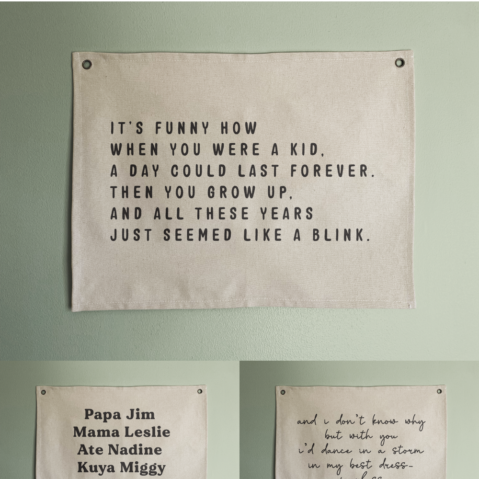 IT'S FUNNY HOW
WHEN YOU WERE A KID,
A DAY COULD LAST FOREVER.
THEN YOU GROW UP,
AND ALL THESE YEARS
JUST SEEMED LIKE A BLINK.
Papa Jim
Mama Leslie
Ate Nadine
Kuya Miggy
and i don't know why
but with you
i'd dance in a storm
in my best dress-